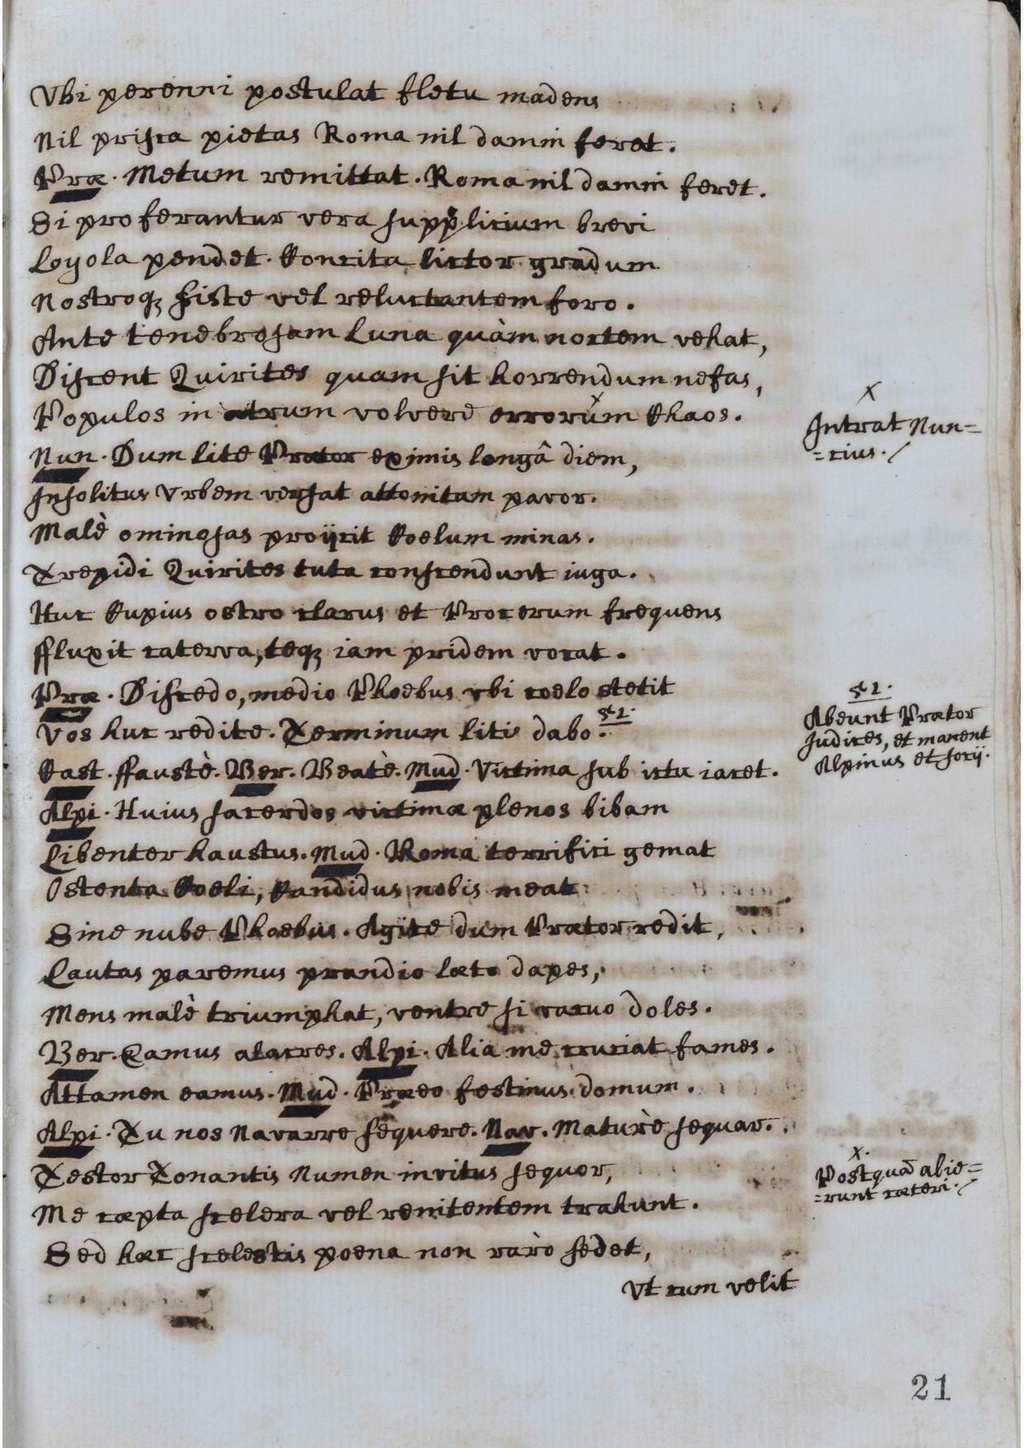 Vbi perenni postulat fletu madens
Nil prisca pietas Roma nil damni feret.
Præ. Metum remittat. Roma nil damni feret.
Si proferantur vera supplicium brevi
Loyola pendet. Concita lictor gradum
Nostroq; siste vel reluctantem foro.
Ante tenebrosam Luna quàm noctem vehat,
Discent Quirites quam sit horrendum nefas,
Populos in atrum volvere errorum Chaos. x
x
Intrat Nun=
=cius./
Nun. Dum lite Prætor eximis longâ diem,
Insolitus Vrbem versat attonitam pavor.
Malè ominosas proijcit Coelum minas.
Trepidi Quirites tuta conscendunt iuga.
Huc Cupius ostro clarus et Procerum frequens
ffluxit caterva, teq; iam pridem vocat.
Præ. Discedo, medio Phoebus vbi coelo stetit
Vos huc redite. Terminum litis dabo. st 2.
st 2.
Abeunt Prætor
Judices, et manent
Alpinus et socij.
Cast. ffaustè. Ber. Beatè. Mud. Victima sub ictu iacet.
Alpi. Huius sacerdos victimæ plenos bibam
Libenter haustus. Mud. Roma terrifici gemat
Ostenta Coeli, Candidus nobis meat
Sine nube Phoebus. Agite dum Prætor redit,
Lautas paremus prandio læto dapes,
Mens malè triumphat, ventre si vacuo doles.
Ber. Eamus alacres. Alpi. Alia me cruciat fames.
Attamen eamus. Mud. Præeo festinus domum.
Alpi. Tu nos Navarre sequere. Nav. Maturè sequar.
x.
Postquã abie=
=runt cæteri./
Testor Tonantis Numen invitus sequor,
Me cæpta scelera vel renitentem trahunt.
Sed hæc scelestis poena non rarò sedet,
Vt cum velit
21